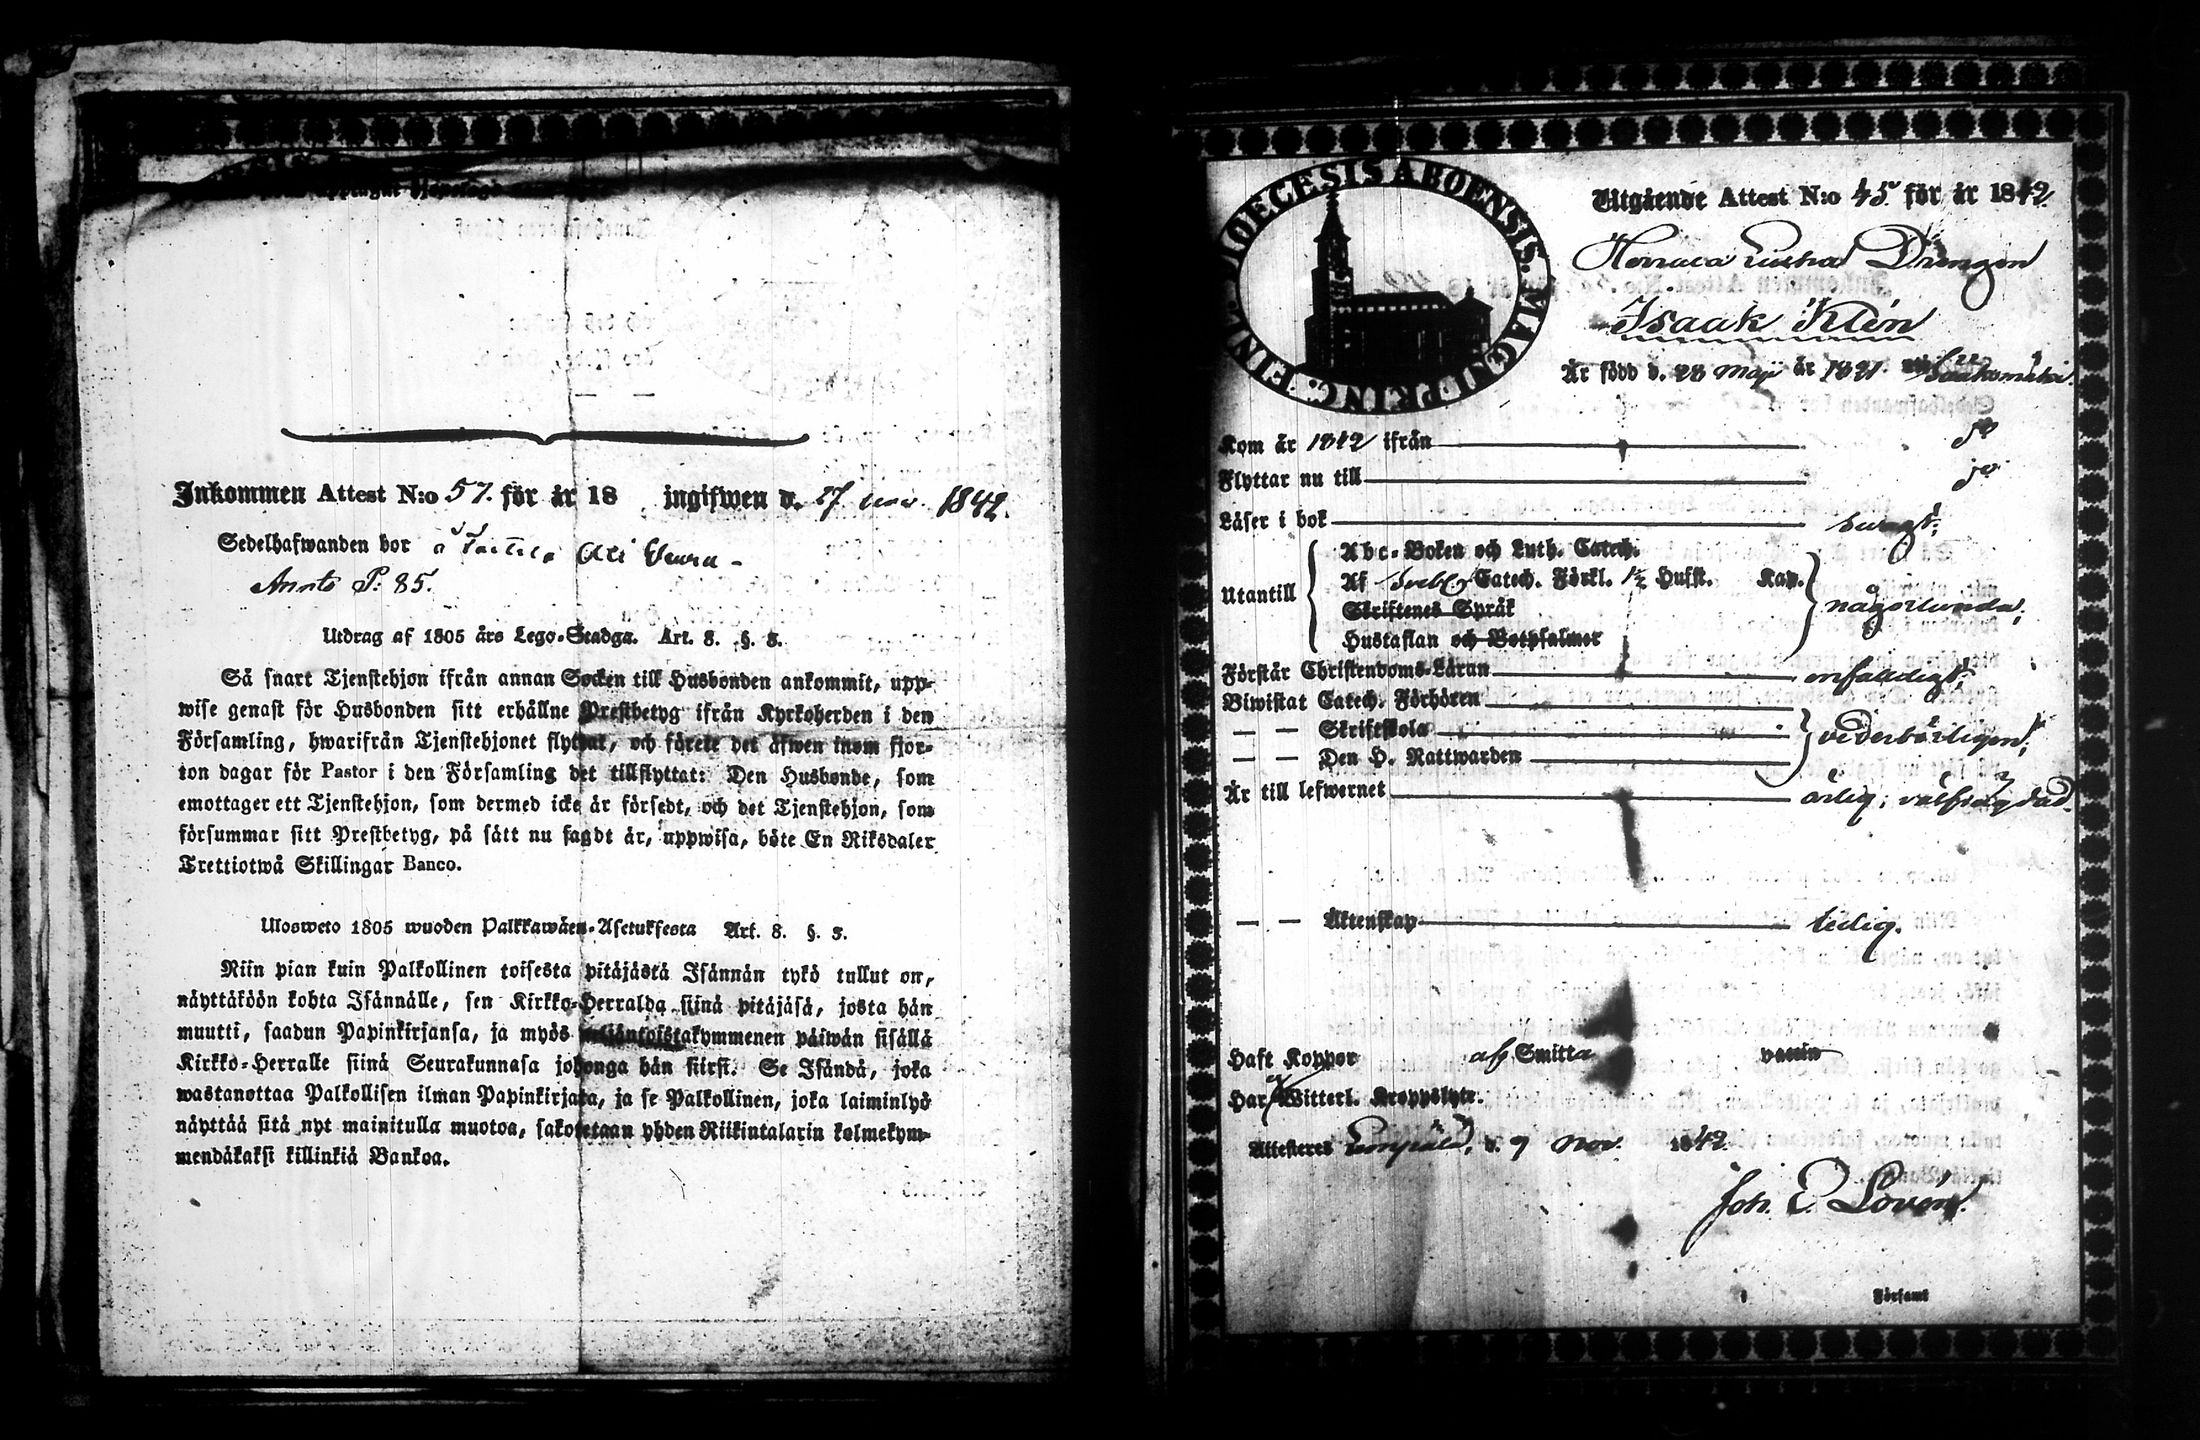 Inkommen Attest N:o 57. för år 18 ingifwen d. 27 nov. 1842.
Sedelhafwanden bor å
Annts P. 85.
Utdrag af 1805 års Lego-Stadga. Art. 8. §. 3.
Så snart Tjenstehjon ifrån annan Socken till Husbonden ankommit, upp-
wise genast för Husbonden sitt erhållne Prestbetyg ifrån Kyrkoherden i den
Församling, hwarifrån Tjenstehjonet flyttat, och förete det äfwen inom fjor-
ton dagar för Pastor i den Församling det tillflyttat: Den Husbonde, som
emottager ett Tjenstehjon, som dermed icke är försedt, och det Tjenstehjon, som
försummar sitt Prestbetyg, på sätt nu sagdt är, uppwisa, böte En Riksdaler
Trettiotwå Skillingar Banco.
Ulosweto 1805 wuoden Palkkawäen-Asetuksesta Art. 8. §. 3.
Niin pian kuin Palkollinen toisesta pitäjästä Isännän tykö tullut on,
näyttäköön kohta Isännälle, sen Kirkko-Herralda siinä pitäjäsä, josta hän
muutti, saadun Papinkirjansa, ja myös neljäntoistakymmenen päiwän sisällä
Kirkko-Herralle siinä Seurakunnasa johonga hän siirsi. Se Isändä, joka
wastanottaa Palkollisen ilman Papinkirjata, ja se Palkollinen, joka laiminlyö
näyttää sitä nyt mainitulla muotoa, sakotetaan yhden Riikintalarin kolmekym-
mendäkaksi killinkiä Bankoa.
DIOECESIS ABOENSIS. MAGNI PRINC. FINL.
Utgående Attest N:o 45 för år 1842.
Drängen
Isaak Klén
Är född d. 28 Maji år 1821.
Kom år 1842 ifrån
Flyttar nu till
Läser i bok svagt;
Abc-Boken och Luth. Catech.
Utantill Af Svebel. Catech. Förkl. 1½ Hufst. Kap. någorlunda;
Skriftenes Språk
Hustaflan och Botpsalmer
Förstår Christendoms-Läran enfaldigt;
Biwistat Catech. Förhören
— — Skriftskola vederbörligen;
— — Den H. Nattwarden
Är till lefwernet ärlig; välfrägdad.
— — Äktenskap ledig.
Haft Koppor af Smitta vaccin
Har ej Witterl. Kroppslyte.
Attesteres Lempälä, d. 9 Nov. 1842.
Joh. E. Lovén.
Församl